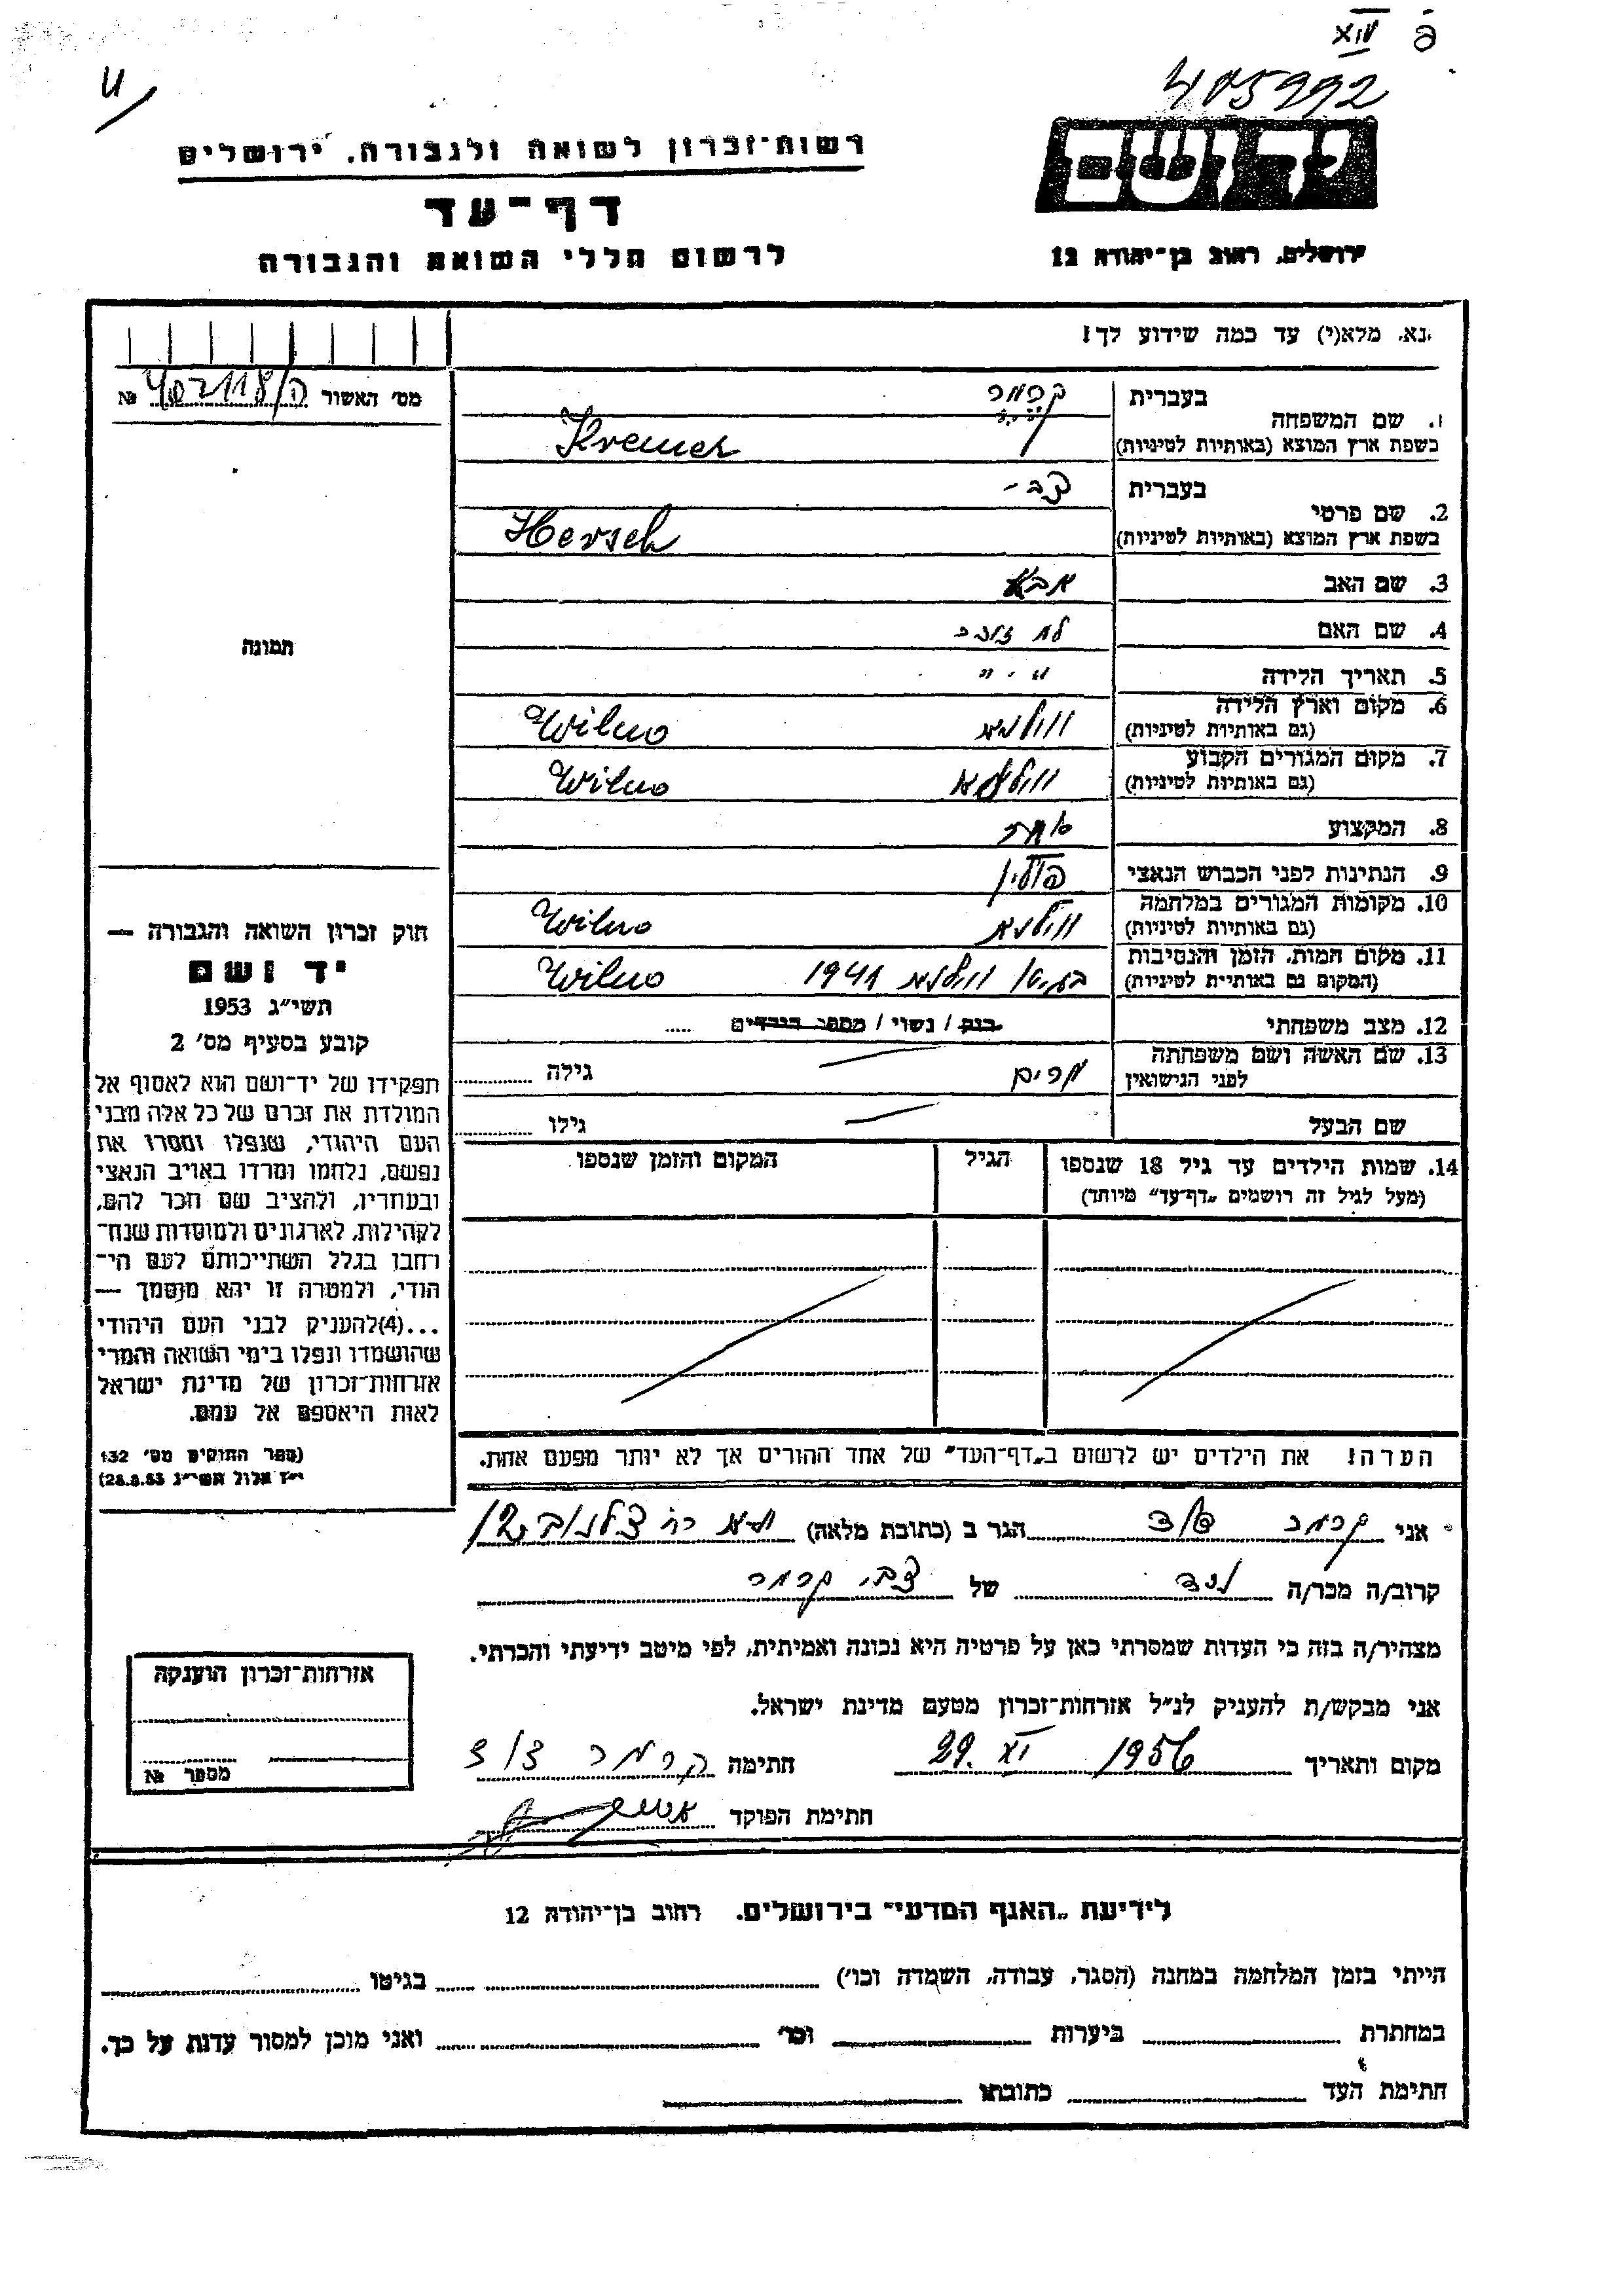 XIV פ
405992
יד ושם
ירושלים, רחוב בן־יהודה 12
רשות־זכרון לשואה ולגבורה, ירושלים
דף־עד
לרשום חללי השואה והגבורה
נא, מלא(י) עד כמה שידוע לך!
מס׳ האשור ה/402118 №
1. שם המשפחה
בעברית קרמר
בשפת ארץ המוצא (באותיות לטיניות) Kremer
2. שם פרטי
בעברית צבי -
בשפת ארץ המוצא (באותיות לטיניות) Hersch
3. שם האב אבא
4. שם האם לא
5. תאריך הלידה " . "
6. מקום וארץ הלידה
(גם באותיות לטיניות) ווילנא Wilno
7. מקום המגורים הקבוע
(גם באותיות לטיניות) ווילנא Wilno
8. המקצוע סוחר
9. הנתינות לפני הכבוש הנאצי פולין
10. מקומות המגורים במלחמה
(גם באותיות לטיניות) ווילנא Wilno
11. מקום המות, הזמן והנסיבות
(המקום גם באותיית לטיניות) בגיטו ווילנא 1941 Wilno
12. מצב משפחתי רווק / נשוי / מספר הילדים .....
13. שם האשה ושם משפחתה
לפני הנישואין מרים גילה
שם הבעל גילו
14. שמות הילדים עד גיל 18 שנספו
(מעל לגיל זה רושמים „דף־עד” מיוחד)
הגיל
המקום והזמן שנספו
הערה! את הילדים יש לרשום ב„דף־העד” של אחד ההורים אך לא יותר מפעם אחת.
תמונה
חוק זכרון השואה והגבורה —
יד ושם
תשי״ג 1953
קובע בסעיף מס׳ 2
תפקידו של יד־ושם הוא לאסוף אל
המולדת את זכרם של כל אלה מבני
העם היהודי, שנפלו ומסרו את
נפשם, נלחמו ומרדו באויב הנאצי
ובעוזריו, ולהציב שם וזכר להם,
לקהילות, לארגונים ולמוסדות שנח־
רחבו בגלל השתייכותם לעם הי־
הודי, ולמטרה זו יהא מוסמך —
...(4)להעניק לבני העם היהודי
שהושמדו ונפלו בימי השואה והמרי
אזרחות־זכרון של מדינת ישראל
לאות היאספם אל עמם.
(ספר החוקים מס׳ 132
י״ז אלול תשי״ג 28.8.53)
אני קרמר הגר ב (כתובת מלאה) ת״א רח׳ צ׳לנוב 12
קרוב/ה מכר/ה נכד של צבי קרמר
מצהיר/ה בזה כי העדות שמסרתי כאן על פרטיה היא נכונה ואמיתית, לפי מיטב ידיעתי והכרתי.
אני מבקש/ת להעניק לנ״ל אזרחות־זכרון מטעם מדינת ישראל.
מקום ותאריך 29. XI 1956 חתימה קרמר
חתימת הפוקד
אזרחות־זכרון הוענקה
מספר №
לידיעת „האגף המדעי” בירושלים. רחוב בן־יהודה 12
הייתי בזמן המלחמה במחנה (הסגר, עבודה, השמדה וכו׳) בגיטו
במחתרת ביערות וכו׳ ואני מוכן למסור עדות על כך.
חתימת העד כתובתו